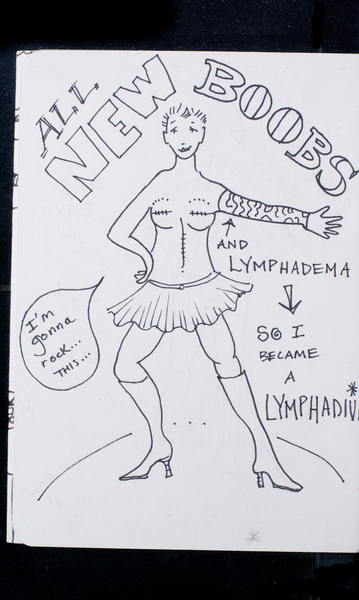 ALL
NEW
BOOBS
AND
LYMPHADEMA
SO I
BECAME
A
LYMPHADIV
I'm
gonna
rock...
THIS...